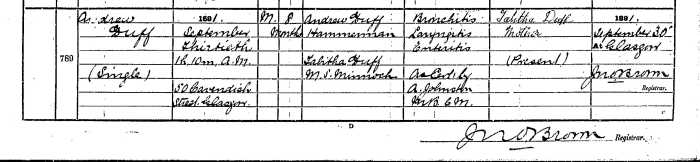 Andrew
Duff
(Single)
789
1891.
September
Thirtieth
1h. 10m. A.M.
50 Cavendish
Street, Glasgow
M.
8
Months
Andrew Duff
Hammerman
Tabitha Duff
M.S. Minnoch
Bronchitis
Laryngitis
Enteritis
As Cert. by
A. Johnston
M.B. C.M.
Tabitha Duff
Mother
(Present)
1891.
September 30
At Glasgow
Jno Brown
Registrar.
D
Jno Brown
Registrar.